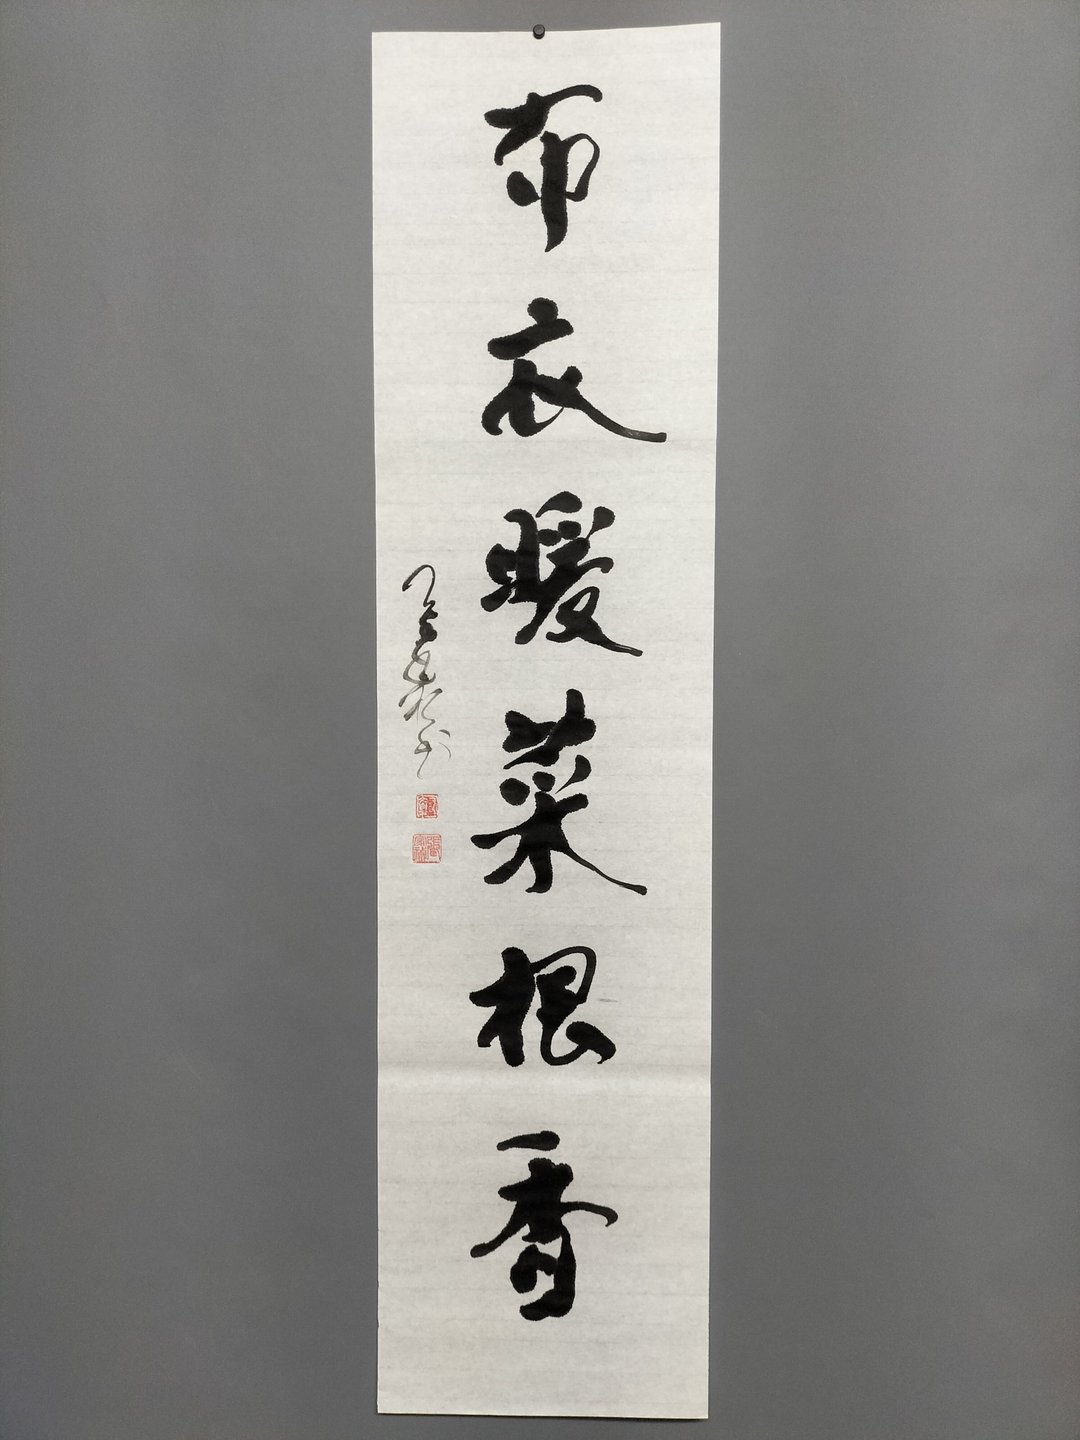 布衣暖菜根香